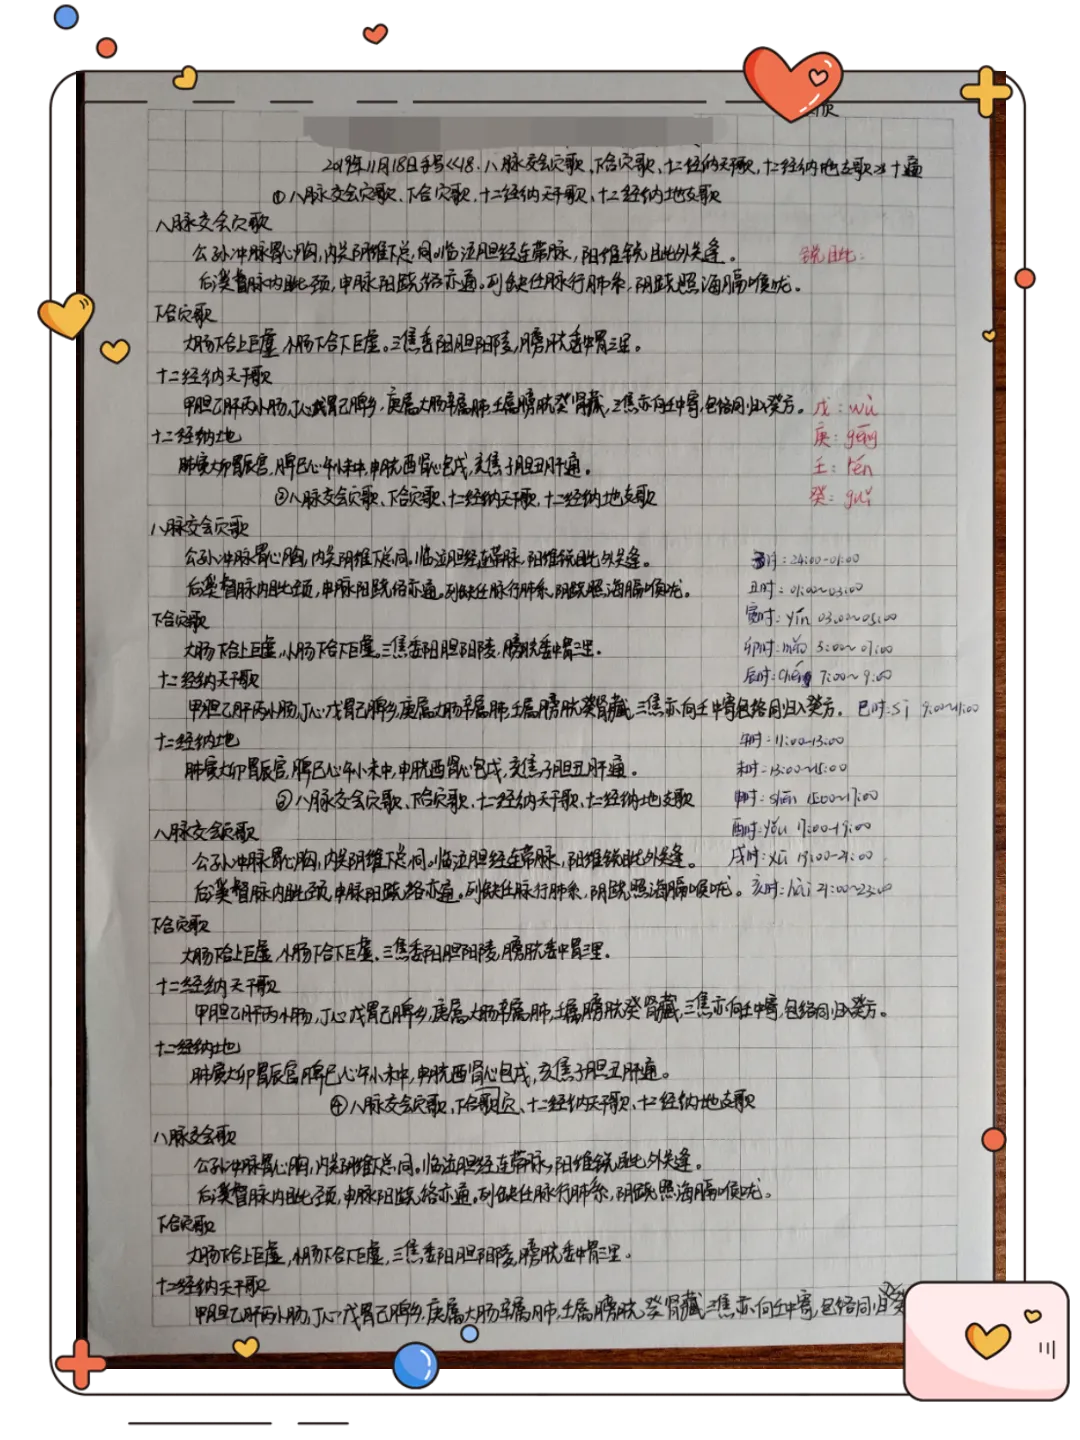 2019年11月18日手写<<18.八脉交会穴歌、下合穴歌、十二经纳天干歌,十二经纳地支歌>>十遍
①八脉交会穴歌、下合穴歌、十二经纳天干歌、十二经纳地支歌
八脉交会穴歌
公孙冲脉胃心胸,内关阴维下总同。临泣胆经连带脉,阳维锐眦外关逢。
锐眦:
后溪督脉内眦颈,申脉阳跷络亦通。列缺任脉行肺系,阴跷照海膈喉咙。
下合穴歌
大肠下合上巨虚,小肠下合下巨虚。三焦委阳胆阳陵,膀胱委中胃三里。
十二经纳天干歌
甲胆乙肝丙小肠,丁心戊胃己脾乡,庚属大肠辛属肺,壬属膀胱癸肾藏,三焦亦向壬中寄,包络同归入癸方。
戊:wù
十二经纳地
庚:gēng
肺寅大卯胃辰宫,脾巳心午小未中,申胱酉肾心包戌,亥焦子胆丑肝通。
壬:rén
②八脉交会穴歌、下合穴歌、十二经纳天干歌,十二经纳地支歌
癸:guǐ
八脉交会穴歌
公孙冲脉胃心胸,内关阴维下总同。临泣胆经连带脉,阳维锐眦外关逢。
子时:24:00-01:00
后溪督脉内眦颈,申脉阳跷络亦通。列缺任脉行肺系,阴跷照海膈喉咙。
丑时:01:00~03:00
下合穴歌
寅时:yín 03:00~05:00
大肠下合上巨虚,小肠下合下巨虚。三焦委阳胆阳陵,膀胱委中胃三里。
卯时:mǎo 5:00~07:00
十二经纳天干歌
辰时:chén 7:00~9:00
甲胆乙肝丙小肠,丁心戊胃己脾乡,庚属大肠辛属肺,壬属膀胱癸肾藏,三焦亦向壬中寄包络同归入癸方。
巳时:sì 9:00~11:00
十二经纳地
午时:11:00-13:00
肺寅大卯胃辰宫,脾巳心午小未中,申胱酉肾心包戌,亥焦子胆丑肝通。
未时:13:00~15:00
③八脉交会穴歌、下合穴歌、十二经纳天干歌、十二经纳地支歌
申时:shēn 15:00~17:00
八脉交会穴歌
酉时:yǒu 17:00-19:00
公孙冲脉胃心胸,内关阴维下总同。临泣胆经连带脉,阳维锐眦外关逢。
戌时:xū 19:00-21:00
后溪督脉内眦颈,申脉阳跷络亦通。列缺任脉行肺系,阴跷照海膈喉咙。
亥时:hài 21:00~23:00
下合穴歌
大肠下合上巨虚,小肠下合下巨虚。三焦委阳胆阳陵,膀胱委中胃三里。
十二经纳天干歌
甲胆乙肝丙小肠,丁心戊胃己脾乡,庚属大肠辛属肺,壬属膀胱癸肾藏,三焦亦向壬中寄,包络同归入癸方。
十二经纳地
肺寅大卯胃辰宫,脾巳心午小未中,申胱酉肾心包戌,亥焦子胆丑肝通。
④八脉交会穴歌、下合歌穴、十二经纳天干歌、十二经纳地支歌
八脉交会歌
公孙冲脉胃心胸,内关阴维下总同。临泣胆经连带脉,阳维锐眦外关逢。
后溪督脉内眦颈,申脉阳跷络亦通。列缺任脉行肺系,阴跷照海膈喉咙。
下合穴歌
大肠下合上巨虚,小肠下合下巨虚,三焦委阳胆阳陵,膀胱委中胃三里。
十二经纳天干歌
甲胆乙肝丙小肠,丁心戊胃己脾乡,庚属大肠辛属肺,壬属膀胱癸肾藏三焦亦向壬中寄,包络同归